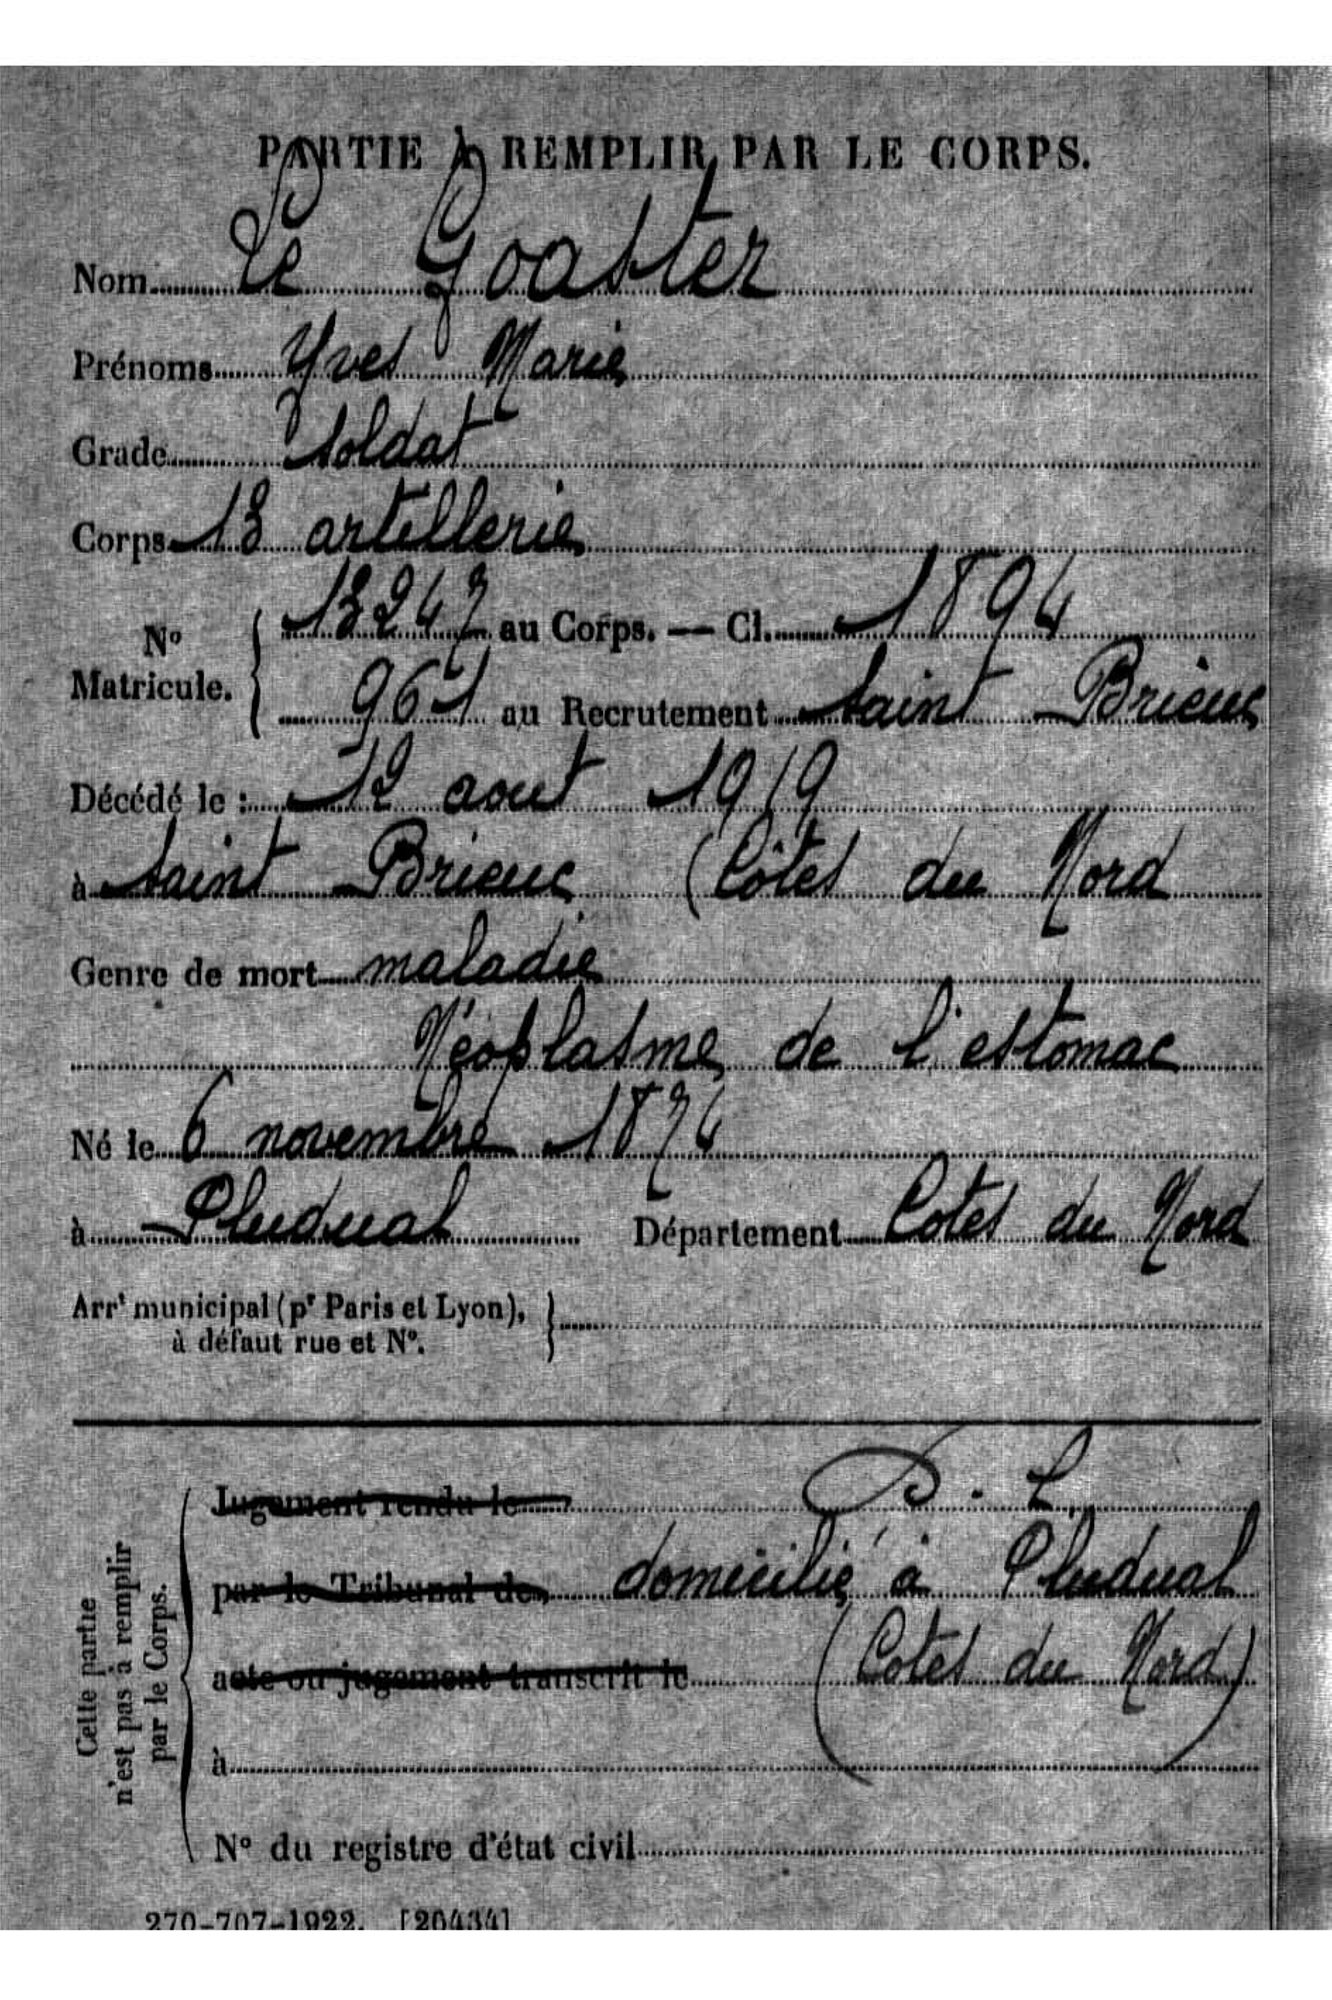 PARTIE À REMPLIR PAR LE CORPS.
Nom Le Goaster
Prénoms Yves Marie
Grade Soldat
Corps 13 artillerie
N° Matricule. { 13247 au Corps. — Cl. 1894
961 au Recrutement Saint Brieuc
Décédé le : 12 aout 1919
à Saint Brieuc (Côtes du Nord
Genre de mort maladie
Néoplasme de l'estomac
Né le 6 novembre 1874
à Pludual Département Cotes du Nord
Arrt municipal (pr Paris et Lyon), }
à défaut rue et N°.
Cette partie n'est pas à remplir par le Corps.
Jugement rendu le
par le Tribunal de domicilié à Pludual
acte ou jugement transcrit le (Cotes du Nord)
à
N° du registre d'état civil
270-707-1922. [26434]